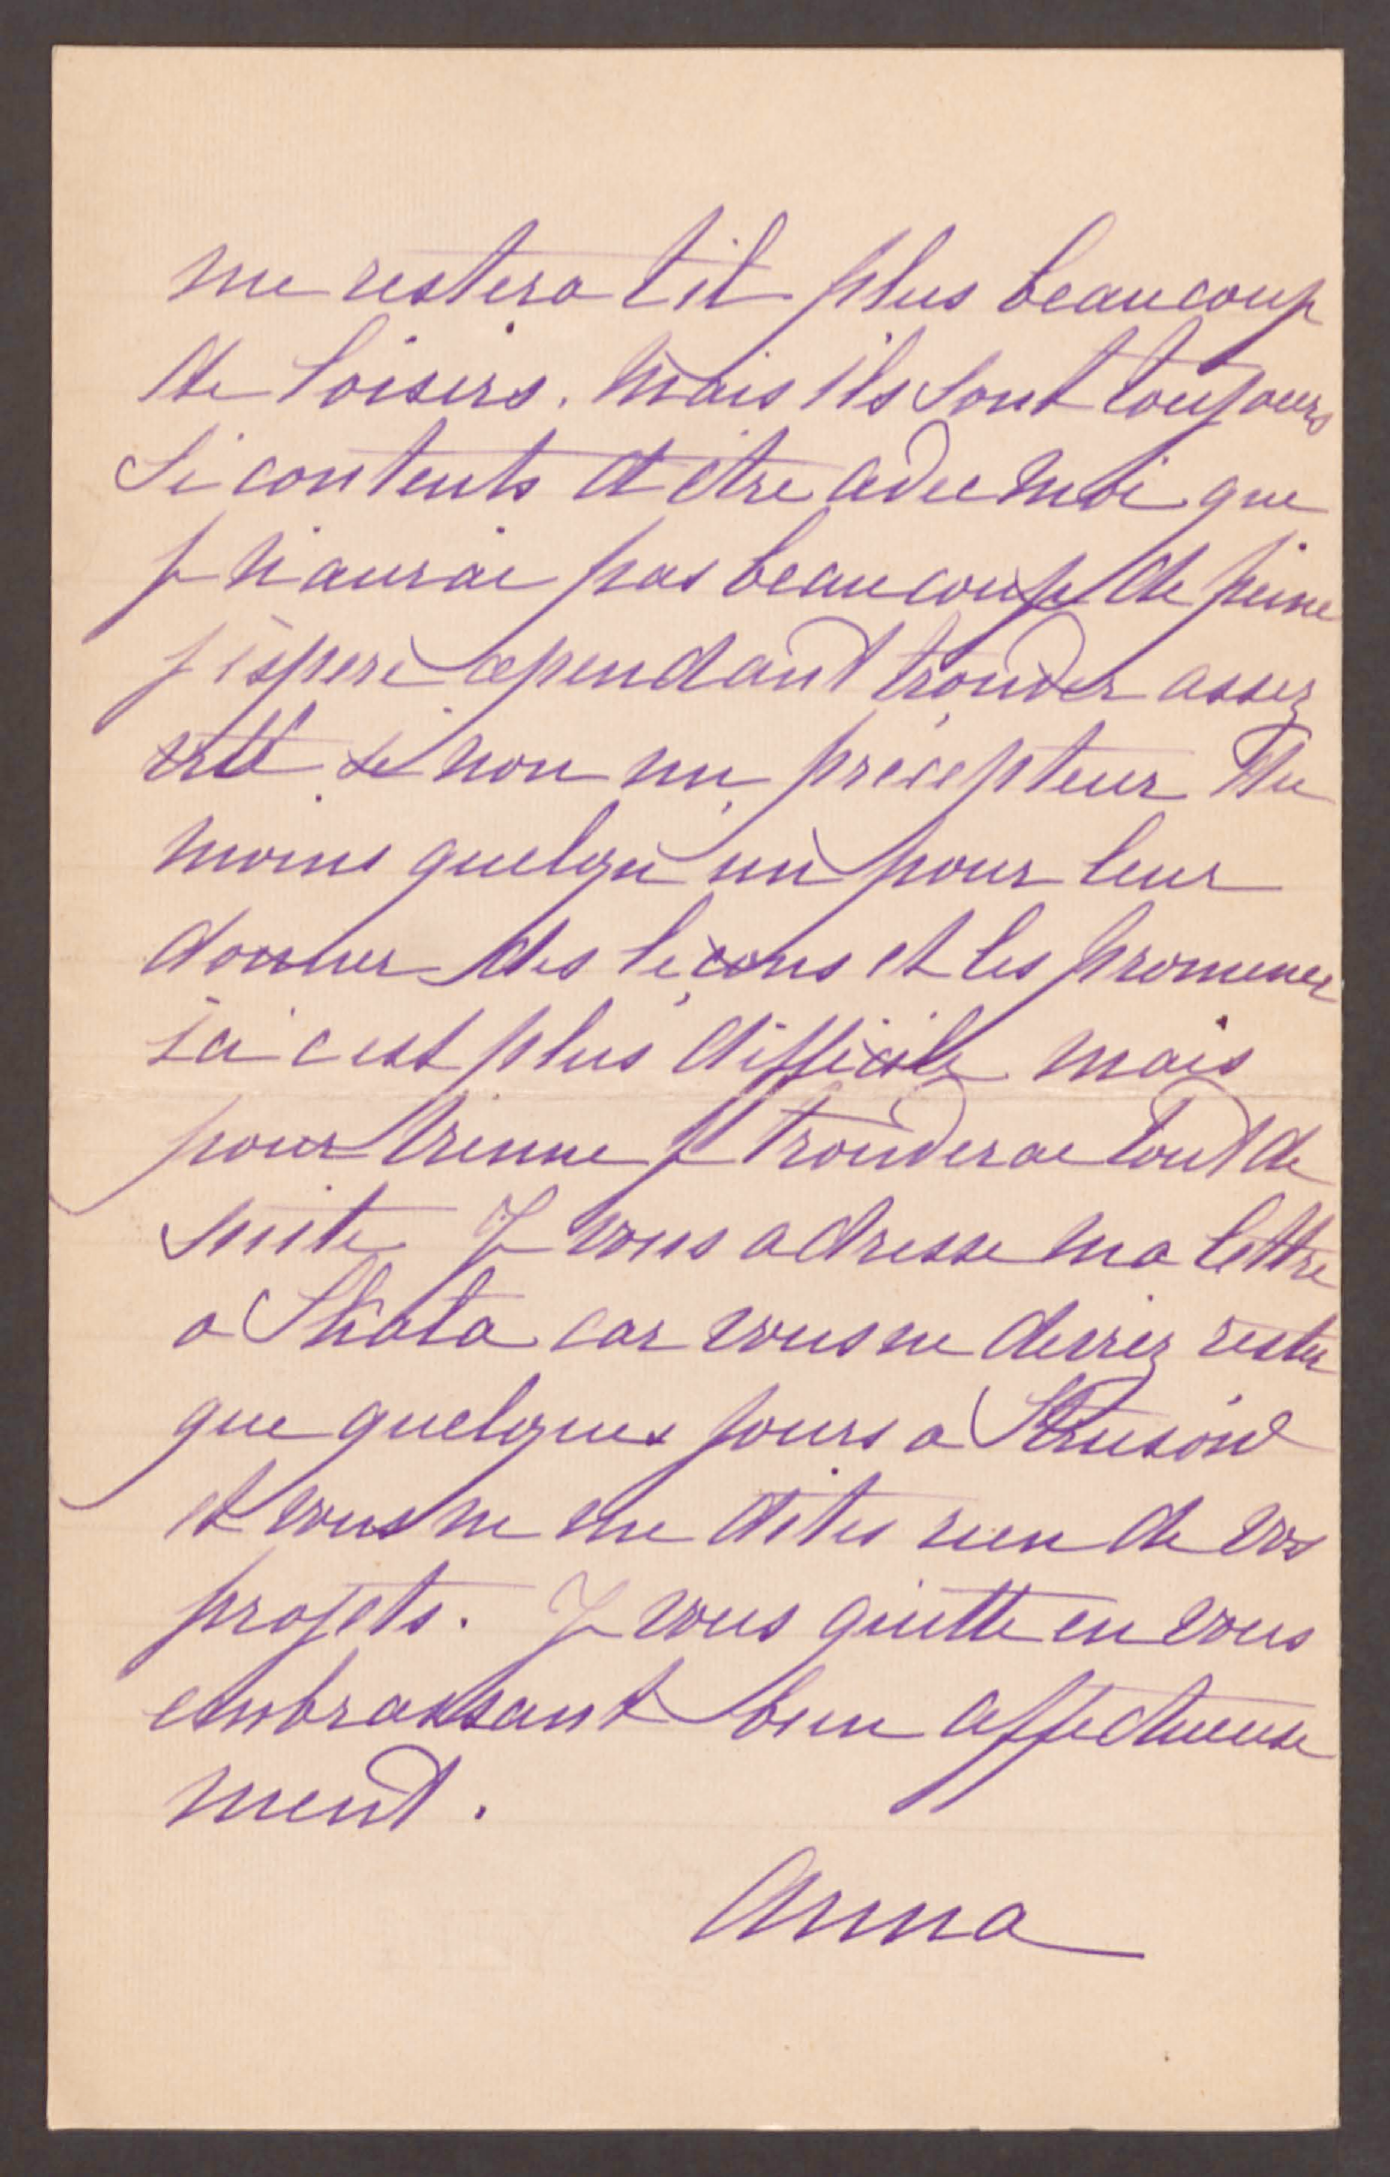 me restera t il plus beaucoup
de loisirs. Mais ils sont toujours
si contents d'être avec moi que
je n'aurai pas beaucoup de peine
j'espère cependant trouver assez
vite si non un précepteur du
moins quelqu'un pour leur
donner des leçons et les promener
ici c'est plus difficile mais
pour Vienne je trouverai tout de
suite Je vous adresse ma lettre
a Skala car vous ne deviez rester
que quelques jours a
et vous ne me dites rien de vos
projets. Je vous quitte en vous
embrassant bien affectueuse
ment.
Anna